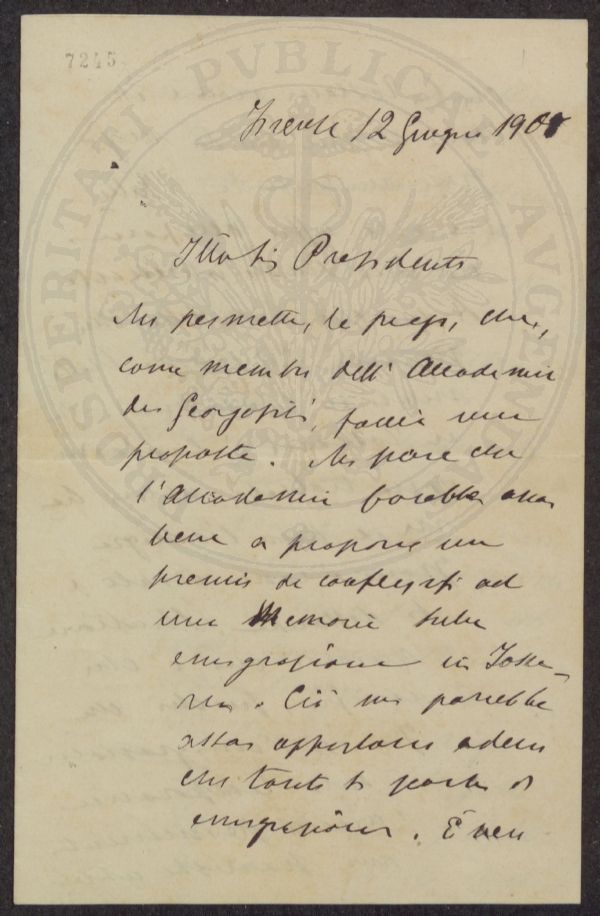 7245
PROSPERITATI PVBLICAE AVGENDAE
Firenze 12 Giugno 190
Presidente
Mi permetta, la prego, che,
come membro dell'Accademia
dei Georgofili, faccia una
proposta. Mi pare che
l'Accademia farebbe assai
bene a proporre un
premio da conferirsi ad
una Memoria sulla
emigrazione in Tosca-
na. Ciò mi parrebbe
assai opportuno adesso
che tanto si parla di
emigrazione. È